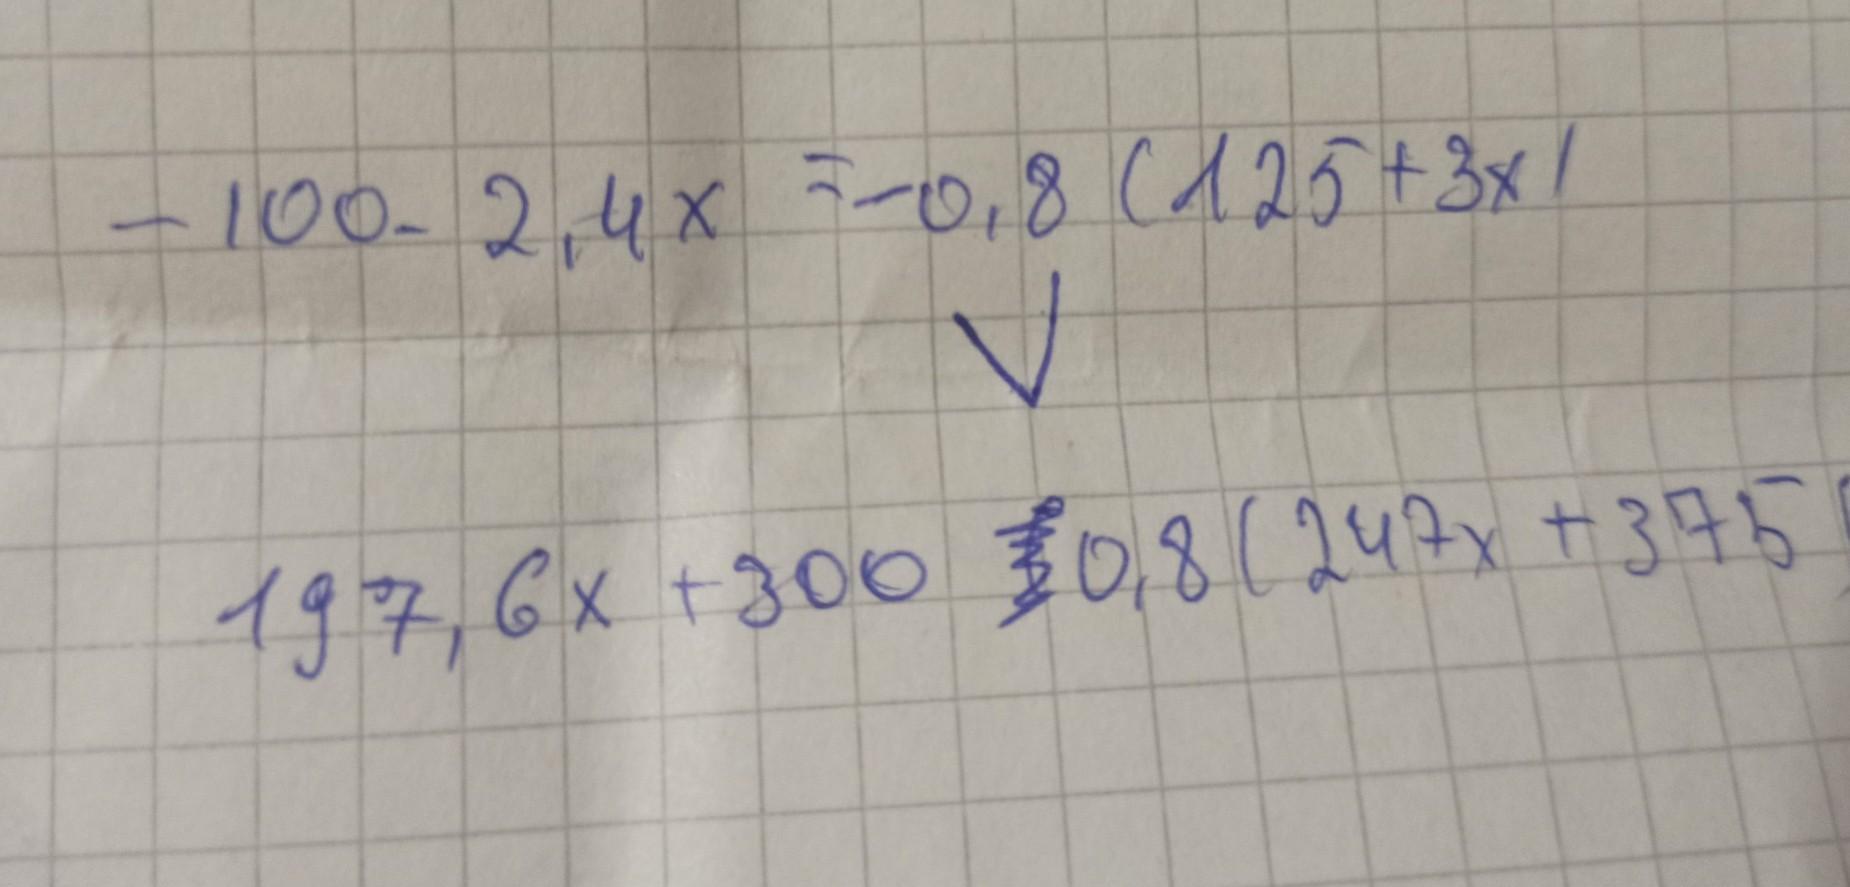 -100-2,4x =-0,8(125+3x)
197,6x+300 0,8(247x+375)